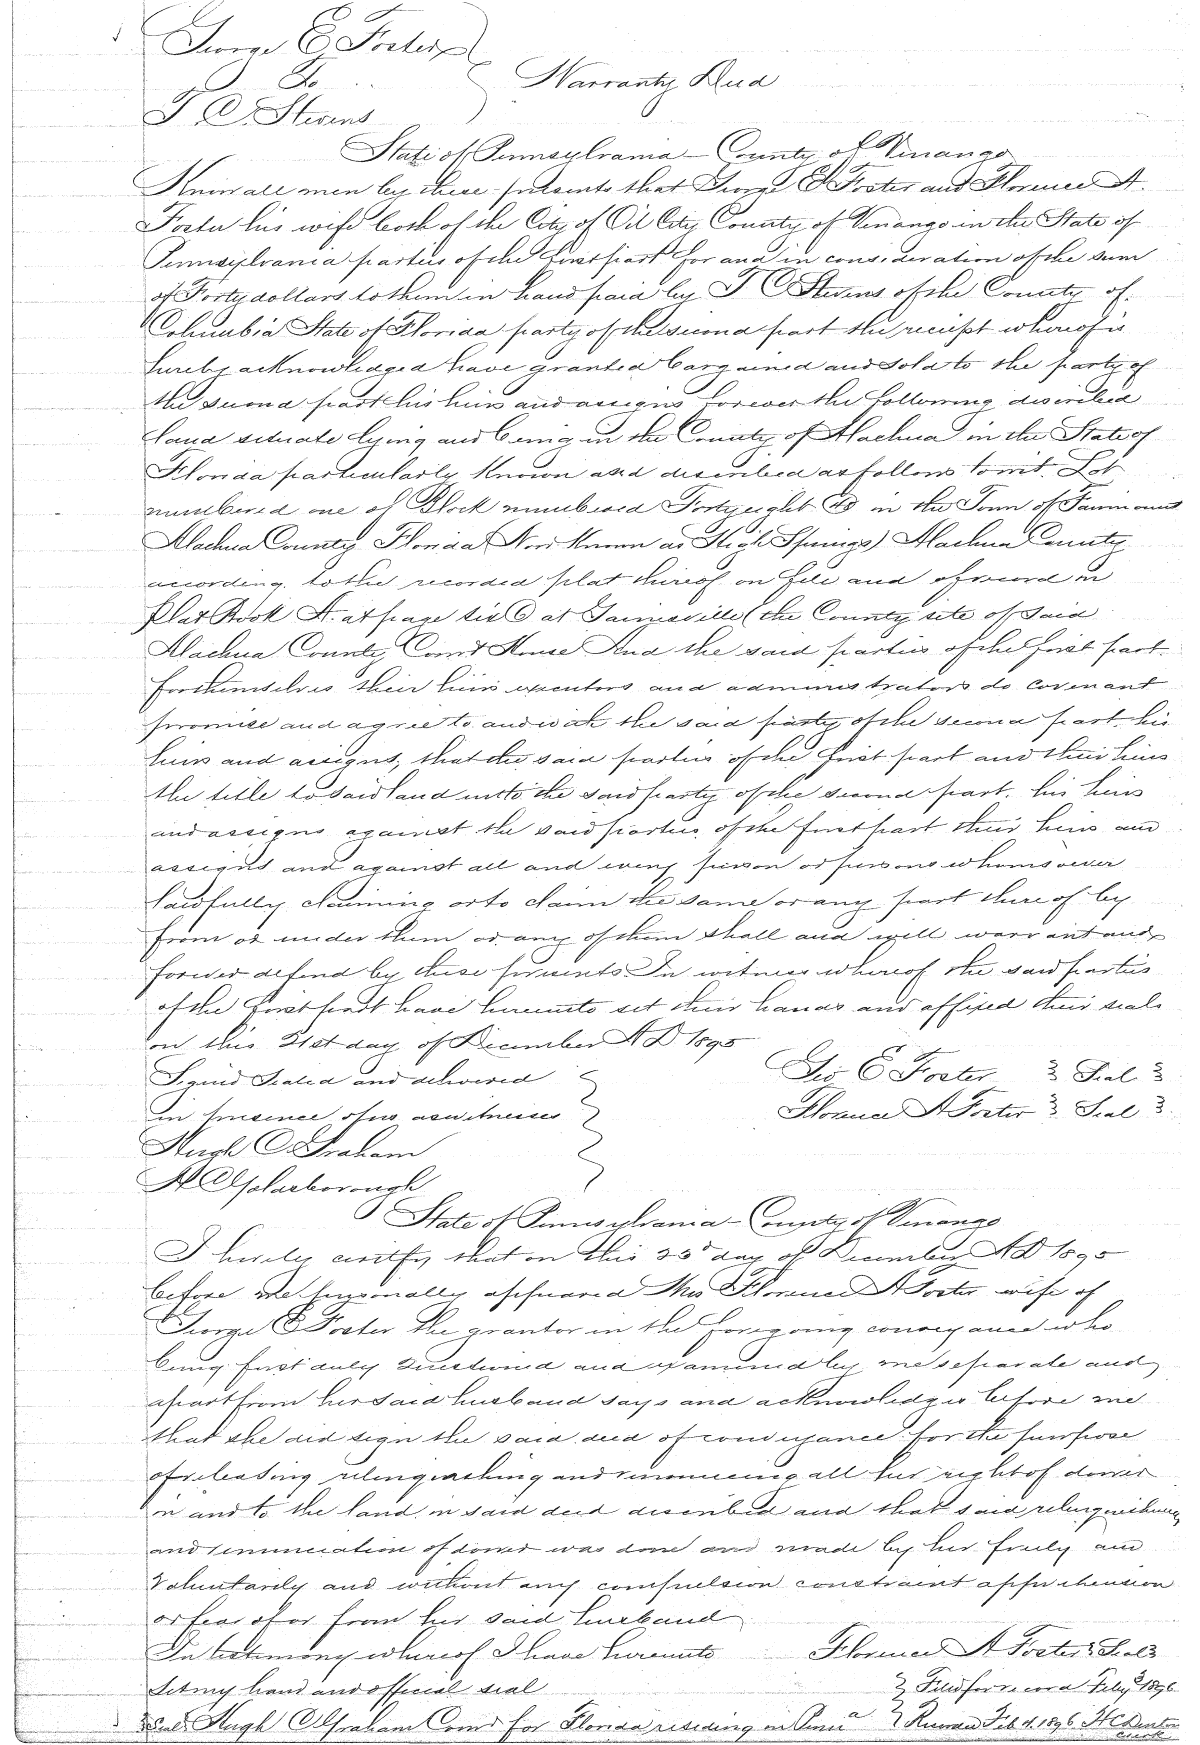 George E. Foster
To
Warranty Deed
T C Stevens
State of Pennsylvania - County of Venango
Know all men by these presents that George E Foster and Florence A.
Foster his wife both of the City of Oil City County of Venango in the State of
Pennsylvania parties of the first part for and in consideration of the sum
of Forty dollars to them in hand paid by T C Stevens of the County of
Columbia State of Florida party of the second part the receipt whereof is
hereby acknowledged have granted bargained and sold to the party of
the second part his heirs and assigns forever the following described
land situate lying and being in the County of Alachua in the State of
Florida particularly known and described as follows towit. Lot
numbered one of Block numbered Forty eight 48 in the Town of Fairmount
Alachua County Florida (Now Known as High Springs) Alachua County
according to the recorded plat thereof on file and of record in
Plat Book A. at page six 6 at Gainesville (the County site of said
Alachua County Court House And the said parties of the first part
for themselves their heirs executors and administrators do covenant
promise and agree to and with the said party of the second part his
heirs and assigns, that the said parties of the first part and their heirs
the title to said land unto the said party of the second part, his heirs
and assigns against the said parties of the first part their heirs and
assigns and against all and every person or persons whomsoever
lawfully claiming or to claim the same or any part thereof by
from or under them or any of them shall and will warrant and
forever defend by these presents. In witness whereof the said parties
of the first part have hereunto set their hands and affixed their seals
on this 21st day of December A D 1895
Signed Sealed and delivered
Geo E Foster Seal
in presence of us as witnesses
Florence A Foster Seal
Hugh C Graham
State of Pennsylvania - County of Venango
I hereby certify that on this 23d day of December A D 1895
before me personally appeared Mrs Florence A Foster wife of
George E Foster the grantor in the foregoing conveyance who
being first duly questioned and examined by me separate and
apart from her said husband says and acknowledges before me
that she did sign the said deed of conveyance for the purpose
of releasing relinquishing and renouncing all her right of dower
in and to the land in said deed described and that said relinquishment
and renunciation of dower was done and made by her freely and
Voluntarily and without any compulsion constraint apprehension
or fear of or from her said husband
In testimony whereof I have hereunto
Florence A Foster Seal
Set my hand and official seal
Filed for record Feby 1896
Seal Hugh C Graham Comr for Florida residing in Penna
Record Feb 4 1896 H C Denton
Clerk